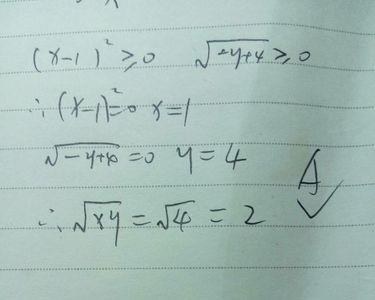 (x-1)²≥0 √-y+4≥0
∴(x-1)²=0 x=1
√-y+4=0 y=4
∴√xy=√4=2
A